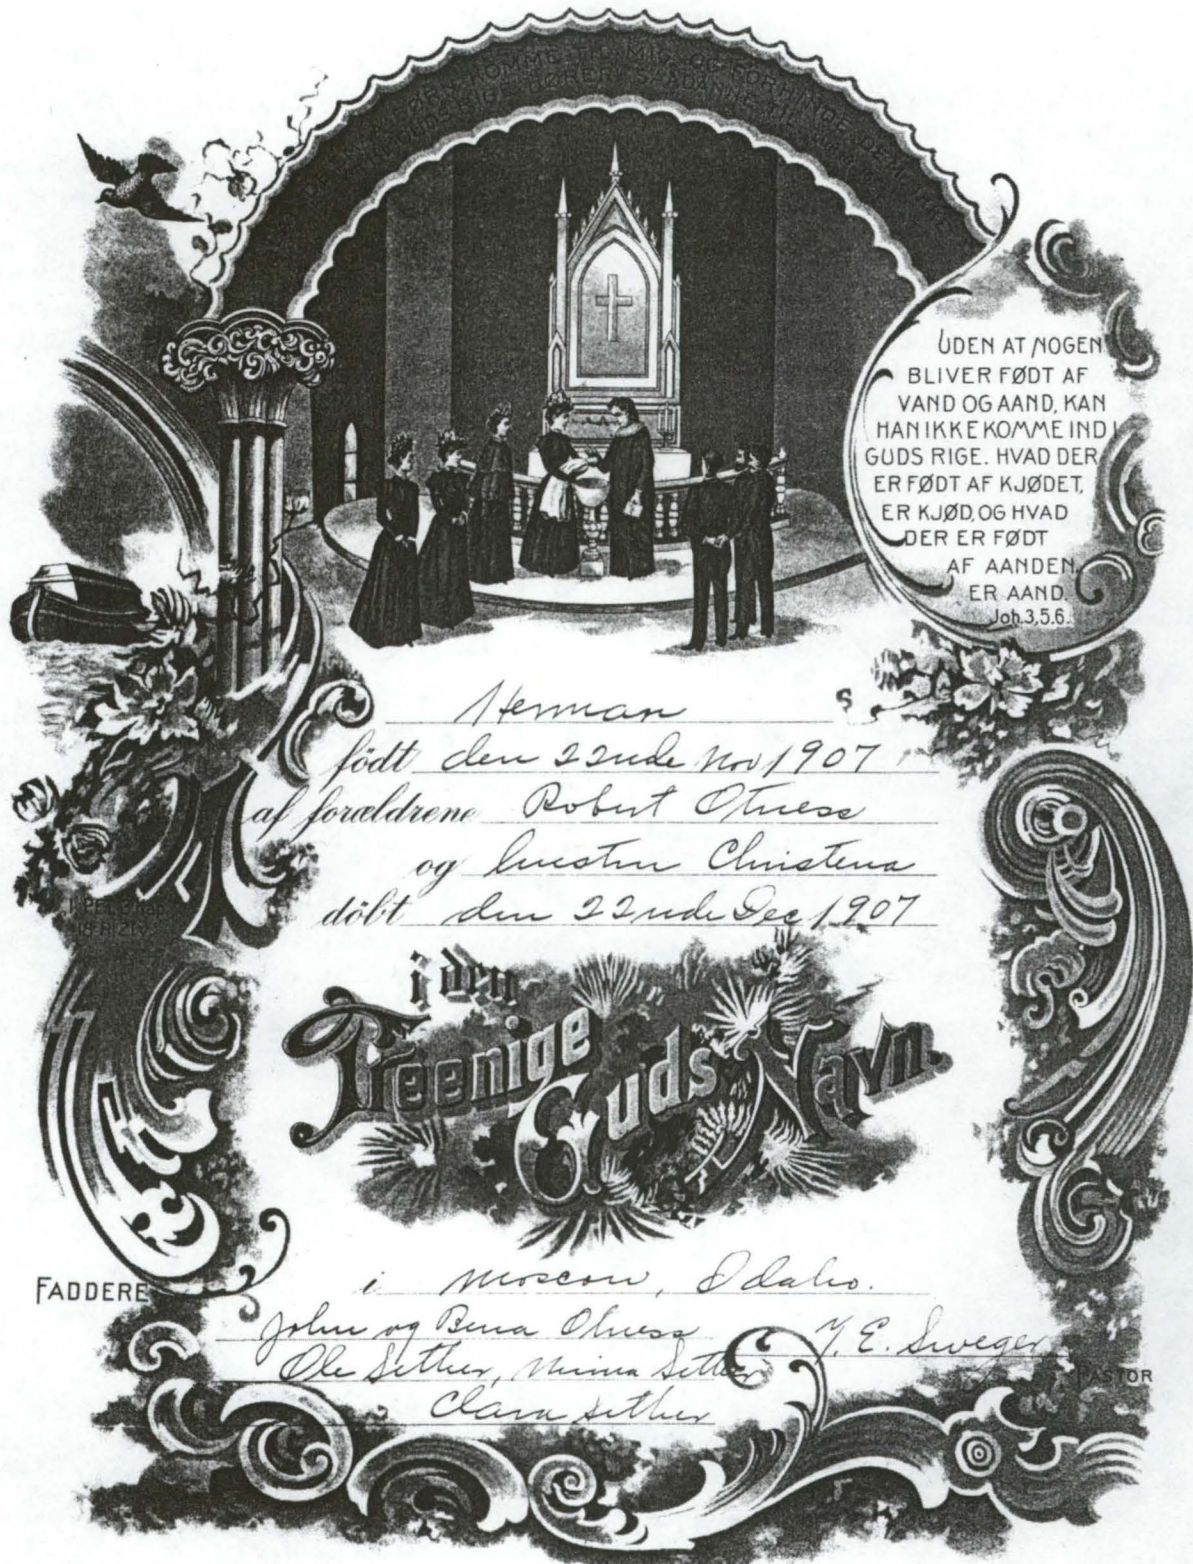 KOMME TIL MIG, OG FORMENER DEM
HØRER SAADANNE TIL
UDEN AT NOGEN
BLIVER FØDT AF
VAND OG AAND, KAN
HAN IKKE KOMME IND I
GUDS RIGE. HVAD DER
ER FØDT AF KJØDET,
ER KJØD, OG HVAD
DER ER FØDT
AF AANDEN,
ER AAND.
Joh. 3, 5.6.
Herman
födt den 22nde Nov 1907
af forældrene Robert Otness
og Christena
döbt den 22nde Dec 1907
i den
Treenige
Guds Navn.
i Moscow, Idaho.
FADDERE
John og Bena Otness
Ole Sether, Minna Sether
Clara Sether
PASTOR